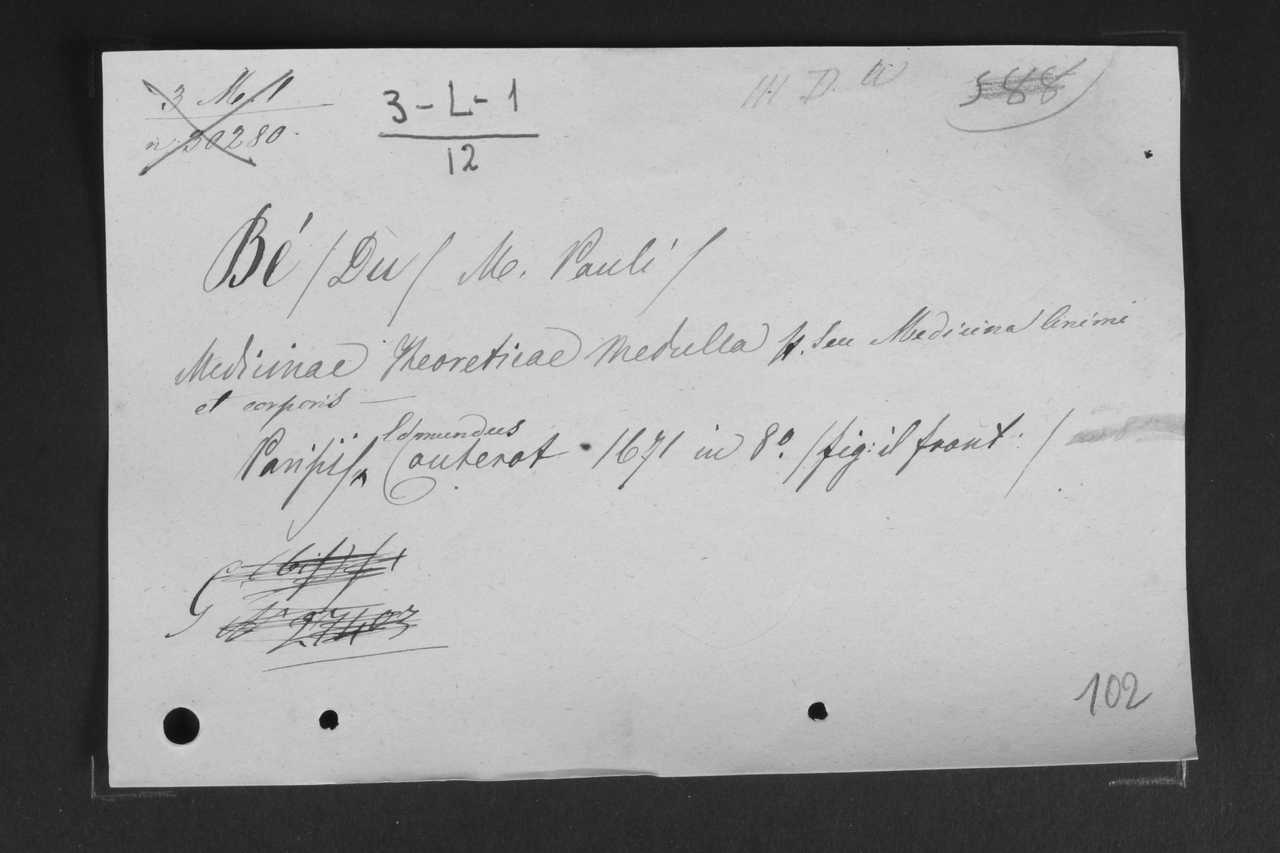 3 M. 11
n. 30280.
3-L-1
12
588
Bé / Du / M. Pauli /
Medicinae Theoreticae Medulla seu Medicina animi
et corporis —
Parisiis Edmundus Couterot 1671 in 8º. / fig: il front: /
G
Nº 27403
102